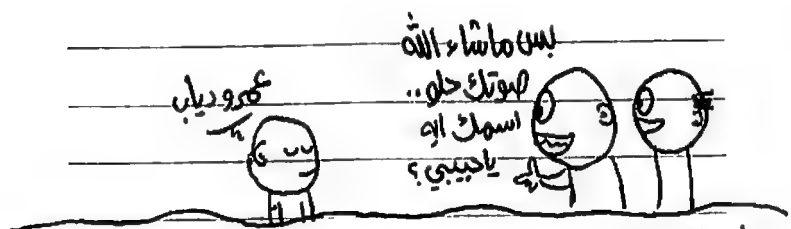 بس ما شاء الله
صوتك حلو..
اسمك ايه
يا حبيبي؟
عمرو دياب